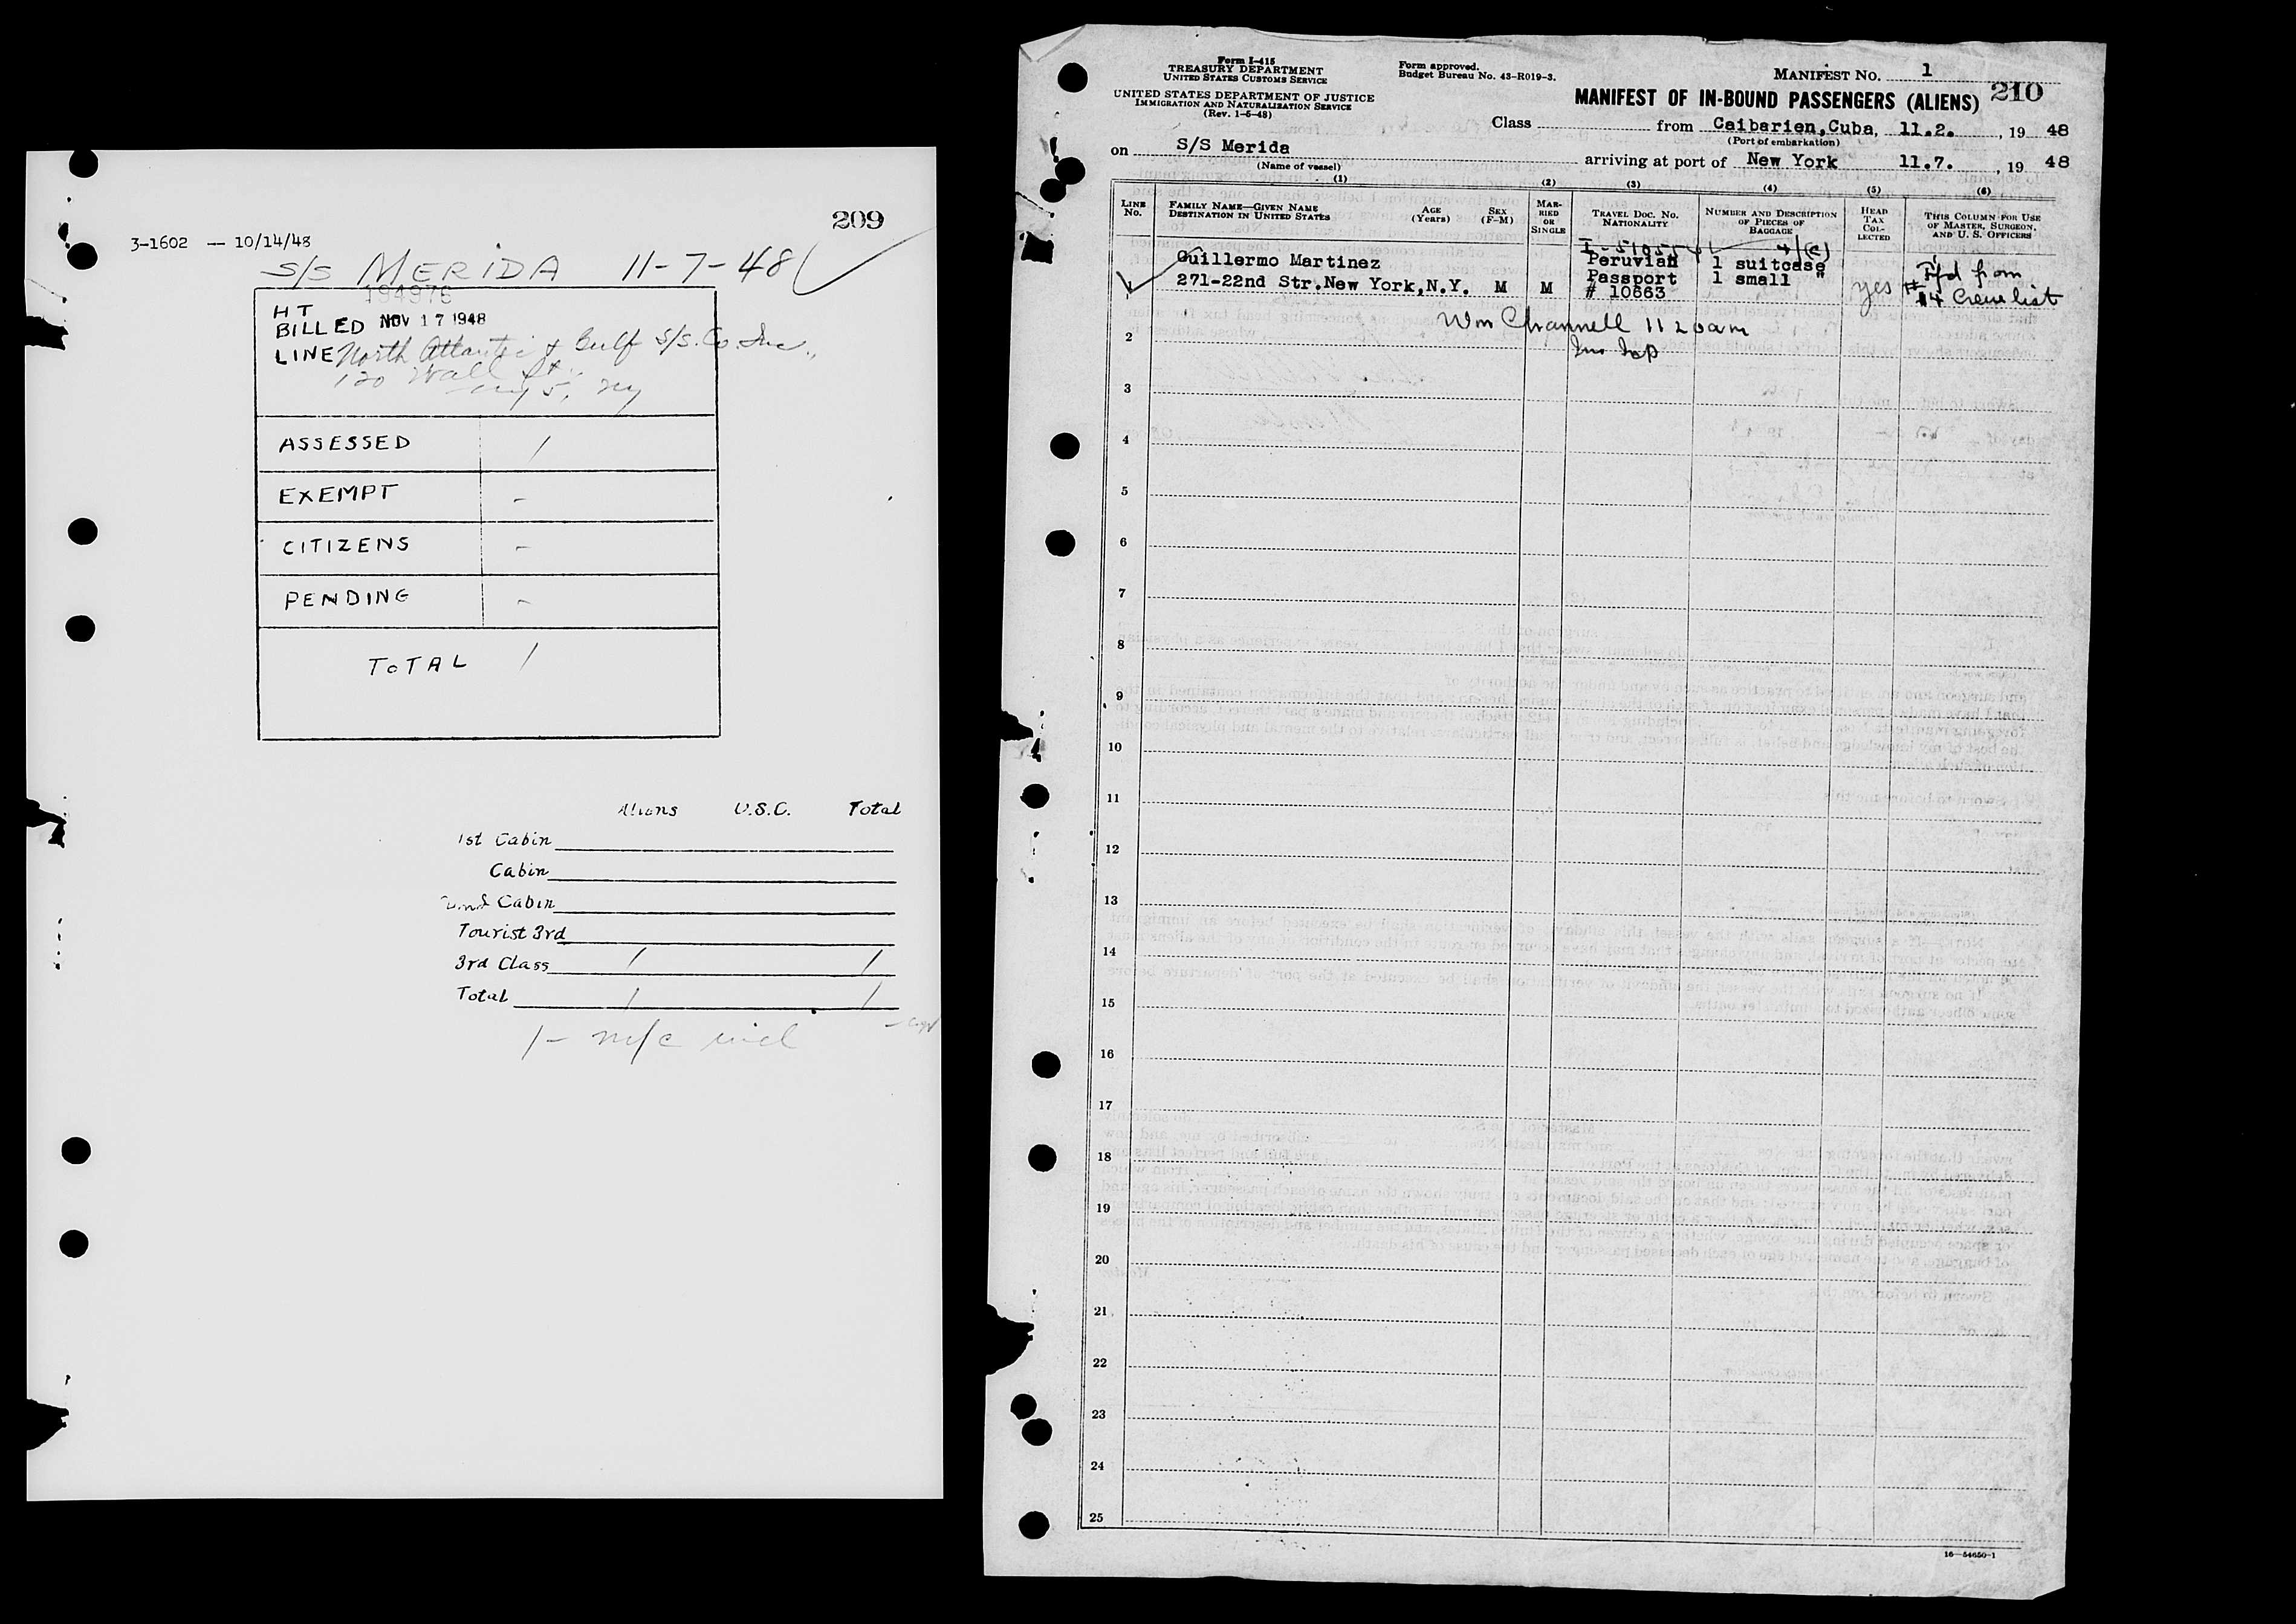 209
3-1602 — 10/14/48
S/S MERIDA 11-7-48
194976
HT
BILLED NOV 17 1948
LINE North Atlantic & Gulf S/S. Co. Inc.,
120 Wall St.,
NY 5, NY
ASSESSED 1
EXEMPT -
CITIZENS -
PENDING -
TOTAL 1
Aliens U.S.C. Total
1st Cabin
Cabin
Cabin
Tourist 3rd
3rd Class 1 1
Total 1 1
1 - m/c incl
Form I-415
TREASURY DEPARTMENT
UNITED STATES CUSTOMS SERVICE
UNITED STATES DEPARTMENT OF JUSTICE
IMMIGRATION AND NATURALIZATION SERVICE
(Rev. 1-6-48)
Form approved.
Budget Bureau No. 43-R019-3.
MANIFEST NO. 1
MANIFEST OF IN-BOUND PASSENGERS (ALIENS) 210
Class from Caibarien, Cuba, 11.2., 19 48
(Port of embarkation)
on S/S Merida arriving at port of New York 11.7., 19 48
(Name of vessel)
(1) (2) (3) (4) (5) (6)
LINE No.
FAMILY NAME—GIVEN NAME
DESTINATION IN UNITED STATES
AGE (Years)
SEX (F-M)
MARRIED OR SINGLE
TRAVEL DOC. NO.
NATIONALITY
NUMBER AND DESCRIPTION OF PIECES OF BAGGAGE
HEAD TAX COLLECTED
THIS COLUMN FOR USE OF MASTER, SURGEON, AND U. S. OFFICERS
Guillermo Martinez Peruvian 1 suitcase
1 271-22nd Str.New York,N.Y. M M Passport 1 small "
# 10663
yes
from
#4 Crew list
Wm Channell 11 20 am
Imm Insp
2
3
4
5
6
7
8
9
10
11
12
13
14
15
16
17
18
19
20
21
22
23
24
25
16—54650-1